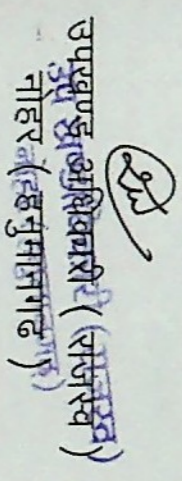 उपखण्ड अधिकारी (राजस्व)
नोहर (हनुमानगढ)